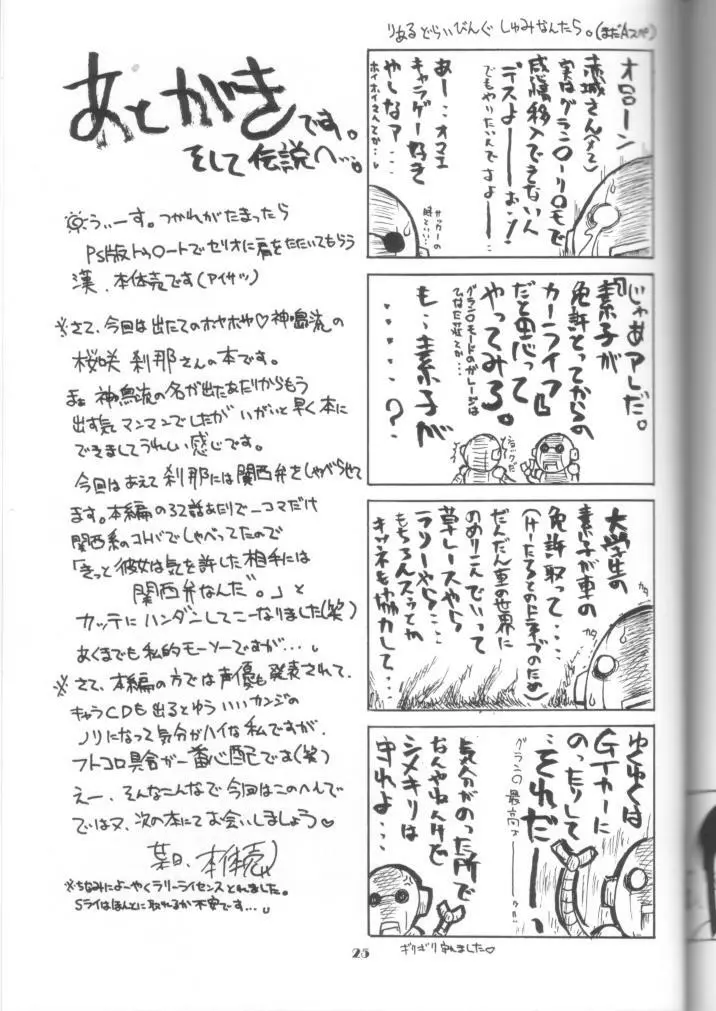 りあるどらいびんぐ しゅみなんたら。(まだAスペ)
あとがきです。
そして伝説へ…。
うぃーす。つかれがたまったら
PS版トゥ○ートでセリオに肩をたたいてもらう
漢、本体売です(アイサツ)
※さて、今回は出たてのホヤホヤ♡神鳴流の
桜咲 刹那さんの本です。
まぁ 神鳴流の名が出たあたりからもう
出す気マンマンでしたが いがいと早く本に
できましてうれしい感じです。
今回はあえて 刹那には関西弁をしゃべらせて
ます。本編の32話あたりで一コマだけ
関西系のコトバでしゃべってたので
「きっと彼女は気を許した相手には
関西弁なんだ。」と
カッテにハンダンしてこーなりました(笑)
あくまでも私的モーソーですが…。
※さて、本編の方では声優も発表されて、
キャラCDも出るとゆういいカンジの
ノリになって気分がハイな私ですが、
フトコロ具合が一番心配です(笑)
えー、そんなこんなで今回はこのへんで
ではヌ、次の本にてお会いしましょう♡
某日、本体売
※ちなみによーやくラリーライセンスとれました。
Sライはほんとに取れるか不安です…。
オローン
赤城さん(メメ)
実はグラン○ーリ○モで
感情移入できないん
デスよ――おッ!
でもやりたいんですよ――
あー…オマエ
キャラゲー好き
やしなァ…
ホイホイさんてか…。
サッカーの
時といい…
『じゃあアレだ。
素子が
免許とってからの
カーライフ』
だと思って
やってみろ。
グラン○モードのガレージは
ひなた荘てか…
も、素子が
・・・・・?
ショックだ
大学生の
素子が車の
免許取って…
(けーたろとのドライブのため)
だんだん車の世界に
のめりこんでいって
草レースやら
ラリーやら…
もちろんスゥとか
キツネも協力して…
カタ
カタ
ゆくゆくは
GTカーに
のったりして
…それだ――っ
グラン○最高ォ――
気分がのった所で
なんやねんけど
シメキリは
守れよ…
ギリギリ守れました♡
25